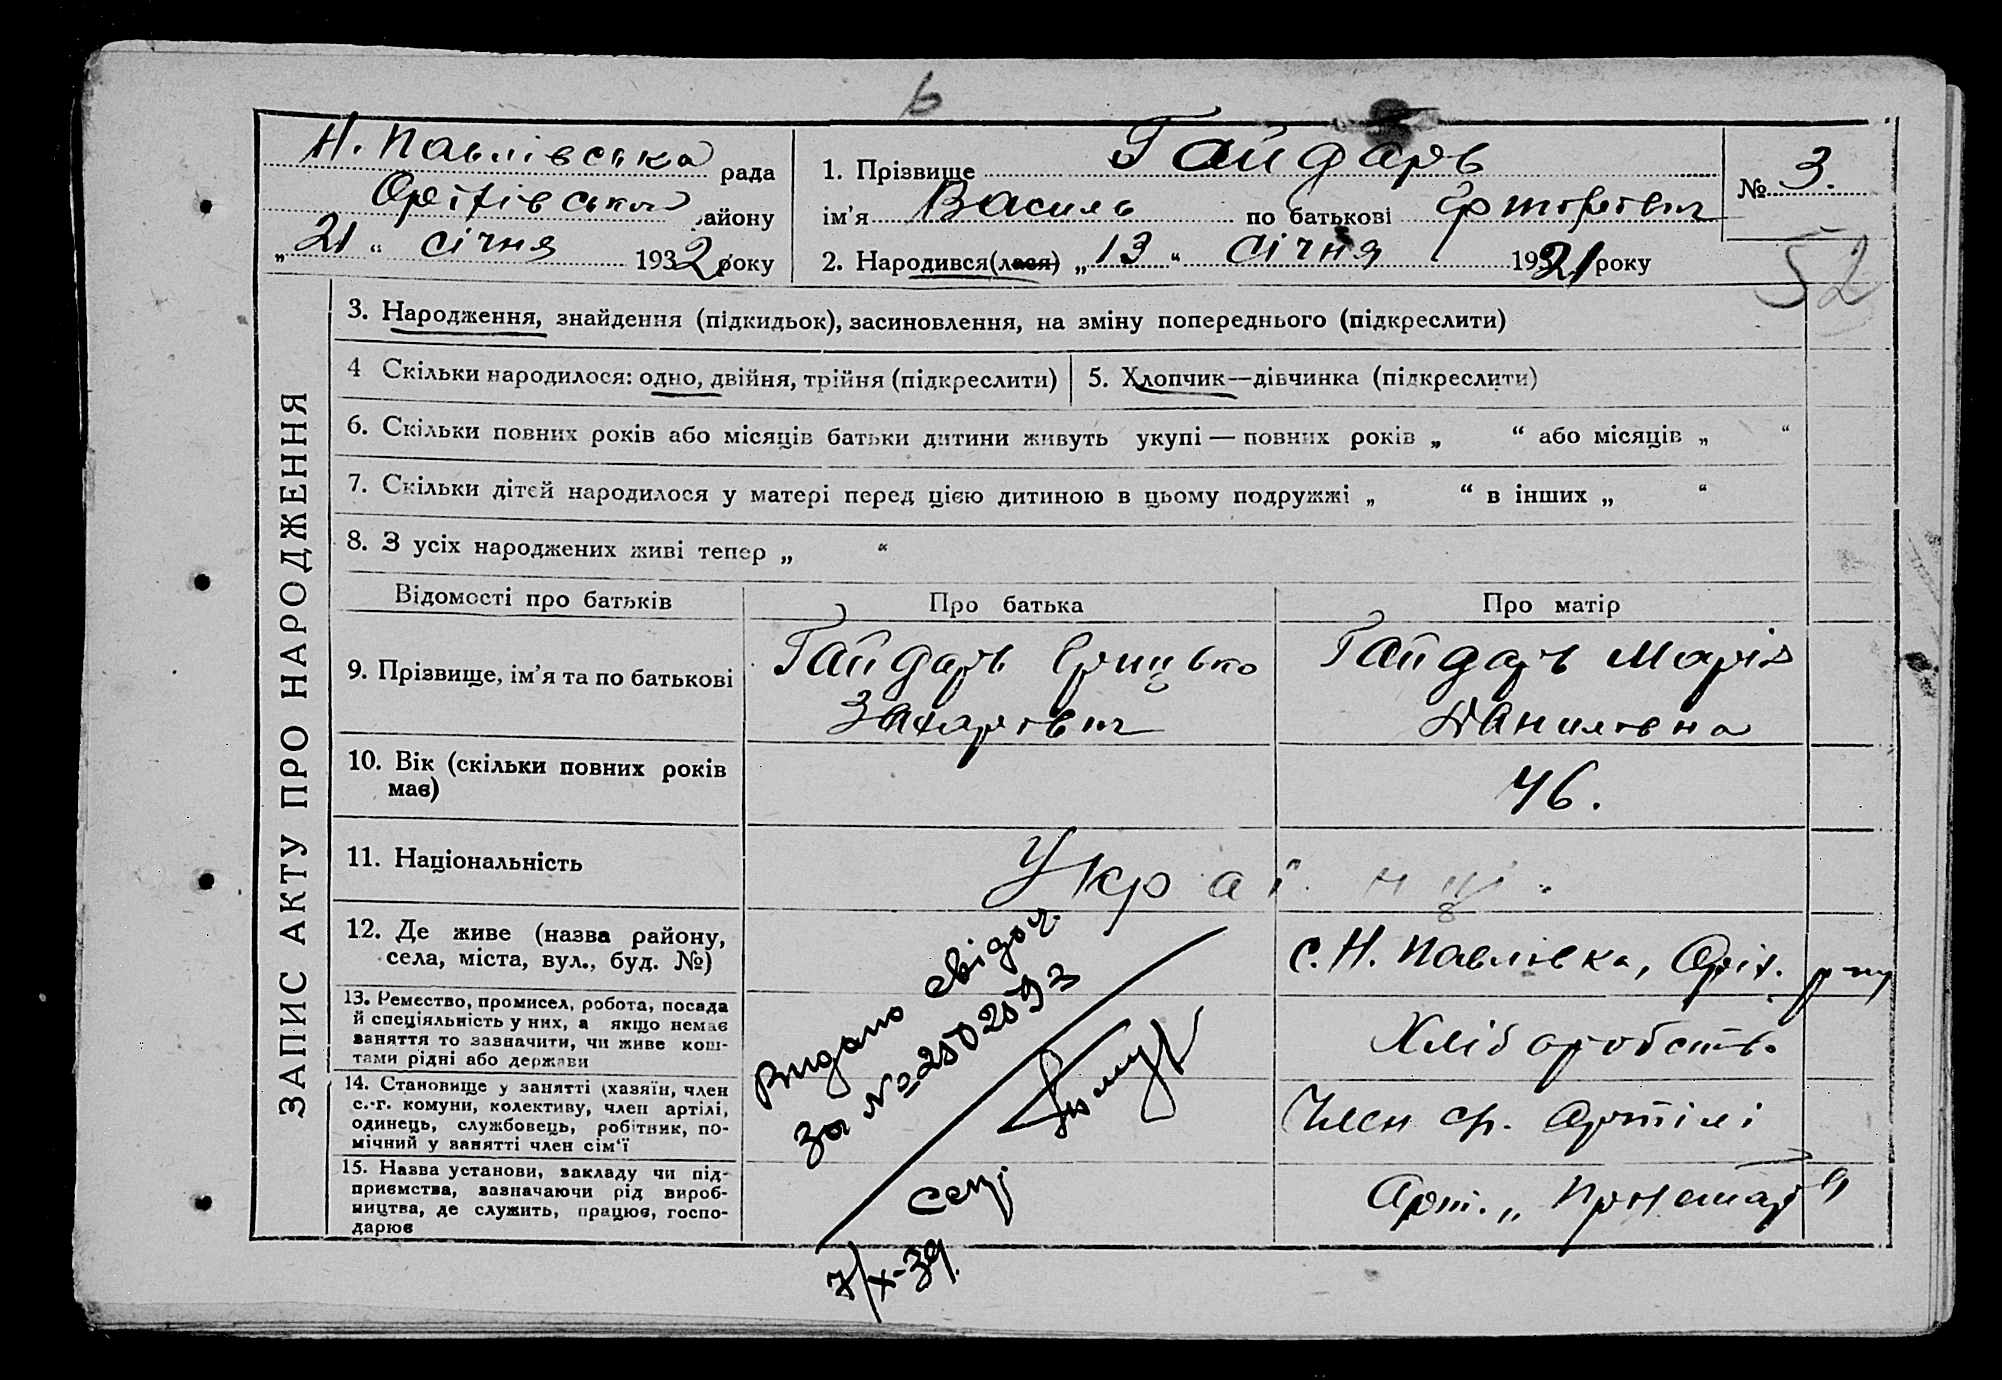 Н. Павлівська рада
Оріхівського району
„21“ січня 1932 року
1. Прізвище Гайдарь
ім’я Василь по батькові
2. Народився(лася) „13“ січня 1921 року
№ 3.
52
3. Народження, знайдення (підкидьок), засиновлення, на зміну попереднього (підкреслити)
4 Скільки народилося: одно, двійня, трійня (підкреслити)
5. Хлопчик—дівчинка (підкреслити)
6. Скільки повних років або місяців батьки дитини живуть укупі — повних років „ “ або місяців „ “
7. Скільки дітей народилося у матері перед цією дитиною в цьому подружжі „ “ в інших „ “
8. З усіх народжених живі тепер „ “
ЗАПИС АКТУ ПРО НАРОДЖЕННЯ
Відомості про батьків
Про батька
Про матір
9. Прізвище, ім’я та по батькові
Гайдарь Грицько
Захарович
Гайдарь Марія
Даниловна
10. Вік (скільки повних років
має)
46.
11. Національність
Україн ці.
12. Де живе (назва району,
села, міста, вул., буд. №)
с. Н. Павлівка, Оріх. р-ну
13. Ремество, промисел, робота, посада
й спеціяльність у них, а якщо немає
заняття то зазначити, чи живе кош-
тами рідні або держави
Хліборобство
14. Становище у занятті (хазяїн, член
с.-г. комуни, колективу, член артілі,
одинець, службовець, робітник, по-
мічний у занятті член сім’ї
Член с.г. Артілі
15. Назва установи, закладу чи під-
приємства, зазначаючи рід вироб-
ництва, де служить, працює, госпо-
дарює
Арт. „
Видано свідоч.
За № 2502593
7/X-39.